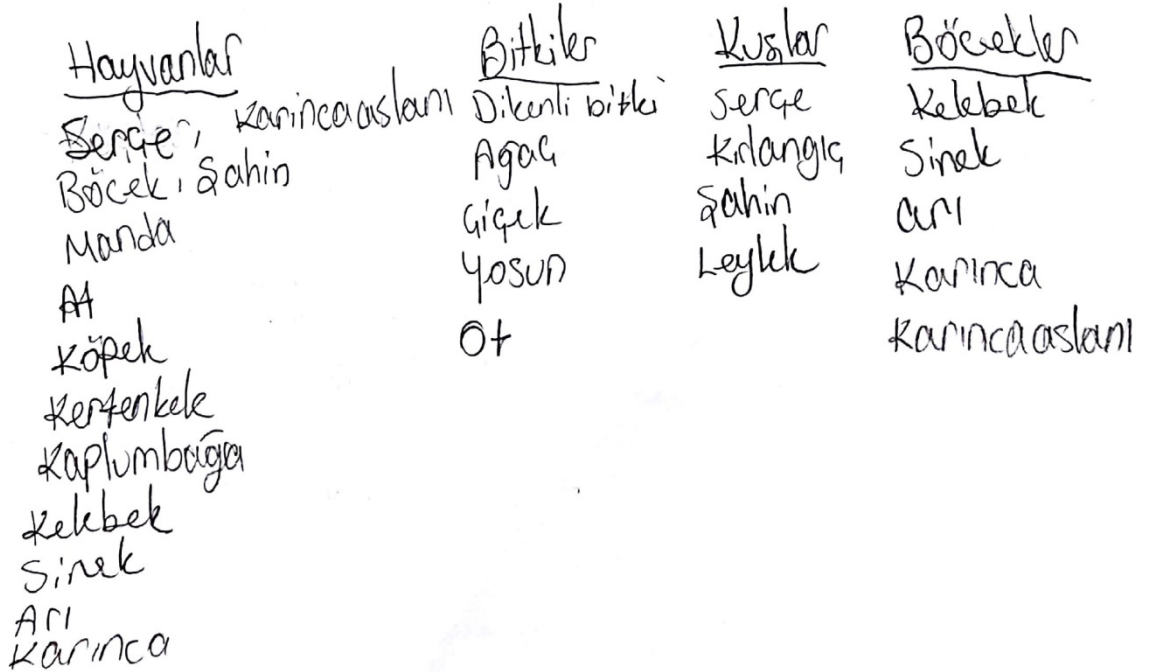 Hayvanlar
Serçe, Karınca aslanı
Böcek, Şahin
Manda
At
Köpek
Kertenkele
Kaplumbağa
Kelebek
Sinek
Arı
Karınca
Bitkiler
Dikenli bitki
Ağaç
Çiçek
Yosun
Ot
Kuşlar
Serçe
Kırlangıç
Şahin
Leylek
Böcekler
Kelebek
Sinek
Arı
Karınca
Karınca aslanı